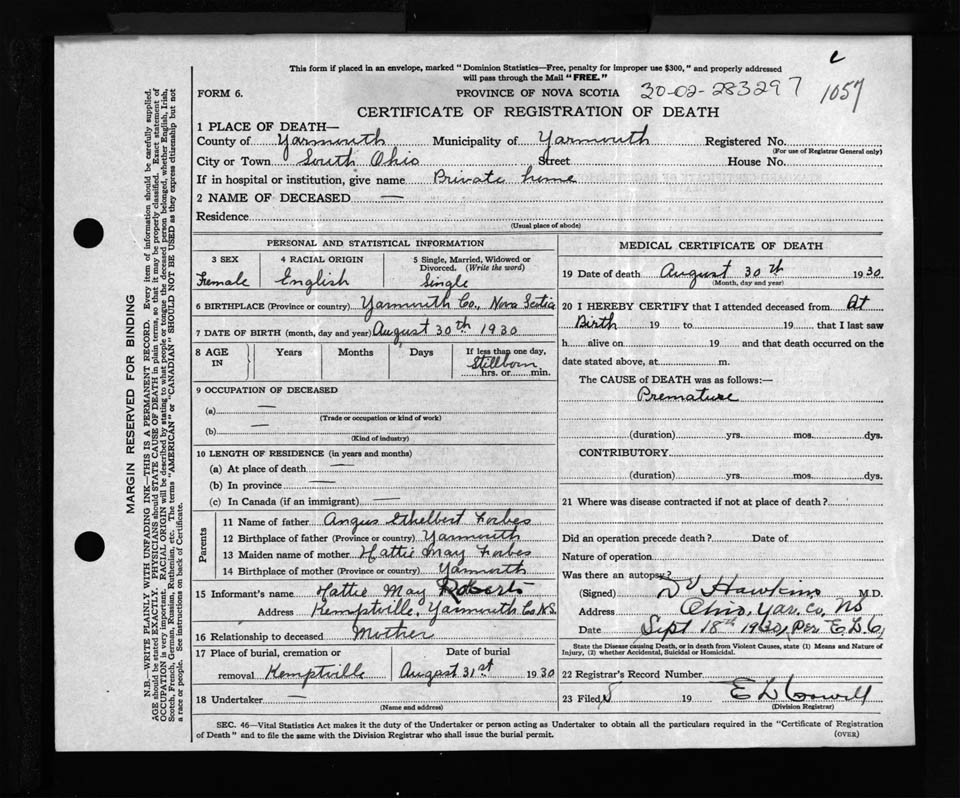 c
This form if placed in an envelope, marked "Dominion Statistics—Free, penalty for improper use $300," and properly addressed
will pass through the Mail "FREE."
FORM 6. PROVINCE OF NOVA SCOTIA 30-02-283297 1057
CERTIFICATE OF REGISTRATION OF DEATH
1 PLACE OF DEATH—
County of Yarmouth Municipality of Yarmouth Registered No.
(For use of Registrar General only)
City or Town South Ohio Street House No.
If in hospital or institution, give name Private home
2 NAME OF DECEASED —
Residence
(Usual place of abode)
PERSONAL AND STATISTICAL INFORMATION
3 SEX 4 RACIAL ORIGIN 5 Single, Married, Widowed or
Divorced. (Write the word)
Female English Single
6 BIRTHPLACE (Province or country) Yarmouth Co., Nova Scotia
7 DATE OF BIRTH (month, day and year) August 30th 1930
8 AGE IN Years Months Days If less than one day,
Stillborn
hrs. or min.
9 OCCUPATION OF DECEASED
(a) —
(Trade or occupation or kind of work)
(b) —
(Kind of industry)
10 LENGTH OF RESIDENCE (in years and months)
(a) At place of death —
(b) In province —
(c) In Canada (if an immigrant) —
Parents
11 Name of father Angus Ethelbert Forbes
12 Birthplace of father (Province or country) Yarmouth
13 Maiden name of mother Hattie May Forbes
14 Birthplace of mother (Province or country) Yarmouth
15 Informant's name Hattie May Roberts
Address Kemptville, Yarmouth Co N.S.
16 Relationship to deceased Mother
17 Place of burial, cremation or Date of burial
removal Kemptville August 31st 1930
18 Undertaker —
(Name and address)
MEDICAL CERTIFICATE OF DEATH
19 Date of death August 30th 1930
(Month, day and year)
20 I HEREBY CERTIFY that I attended deceased from At
Birth 19 to 19 that I last saw
h alive on 19 and that death occurred on the
date stated above, at m.
The CAUSE of DEATH was as follows:—
Premature
(duration) yrs. mos. dys.
CONTRIBUTORY
(duration) yrs. mos. dys.
21 Where was disease contracted if not at place of death?
Did an operation precede death? Date of
Nature of operation
Was there an autopsy?
(Signed) Hawkins M.D.
Address Ohio, Yar. Co. NS
Date Sept 18th 1930, Per E.L.C.
State the Disease causing Death, or in death from Violent Causes, state (1) Means and Nature of
Injury, (2) whether Accidental, Suicidal or Homicidal.
22 Registrar's Record Number
23 Filed 19 E L
(Division Registrar)
SEC. 46—Vital Statistics Act makes it the duty of the Undertaker or person acting as Undertaker to obtain all the particulars required in the "Certificate of Registration
of Death" and to file the same with the Division Registrar who shall issue the burial permit.
(OVER)
MARGIN RESERVED FOR BINDING
N.B.—WRITE PLAINLY WITH UNFADING INK—THIS IS A PERMANENT RECORD. Every item of information should be carefully supplied.
AGE should be stated EXACTLY. PHYSICIANS should STATE CAUSE OF DEATH in plain terms, so that it may be properly classified. Exact statement of
OCCUPATION is very important. RACIAL ORIGIN will be described by stating to what people or tongue the deceased person belonged, whether English, Irish,
Scotch, French, German, Russian, Ruthenian, etc. The terms "AMERICAN" or "CANADIAN" SHOULD NOT BE USED as they express citizenship but not
a race or people. See instructions on back of Certificate.